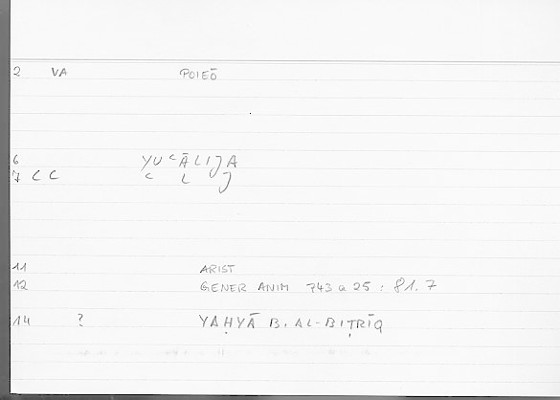 2 VA POIEŌ
6 YUʿĀLIJA
7 C C C L J
11 ARIST
12 GENER ANIM 743 a 25 : 81.7
14 ? YAḤYĀ B. AL-BIṬRĪQ